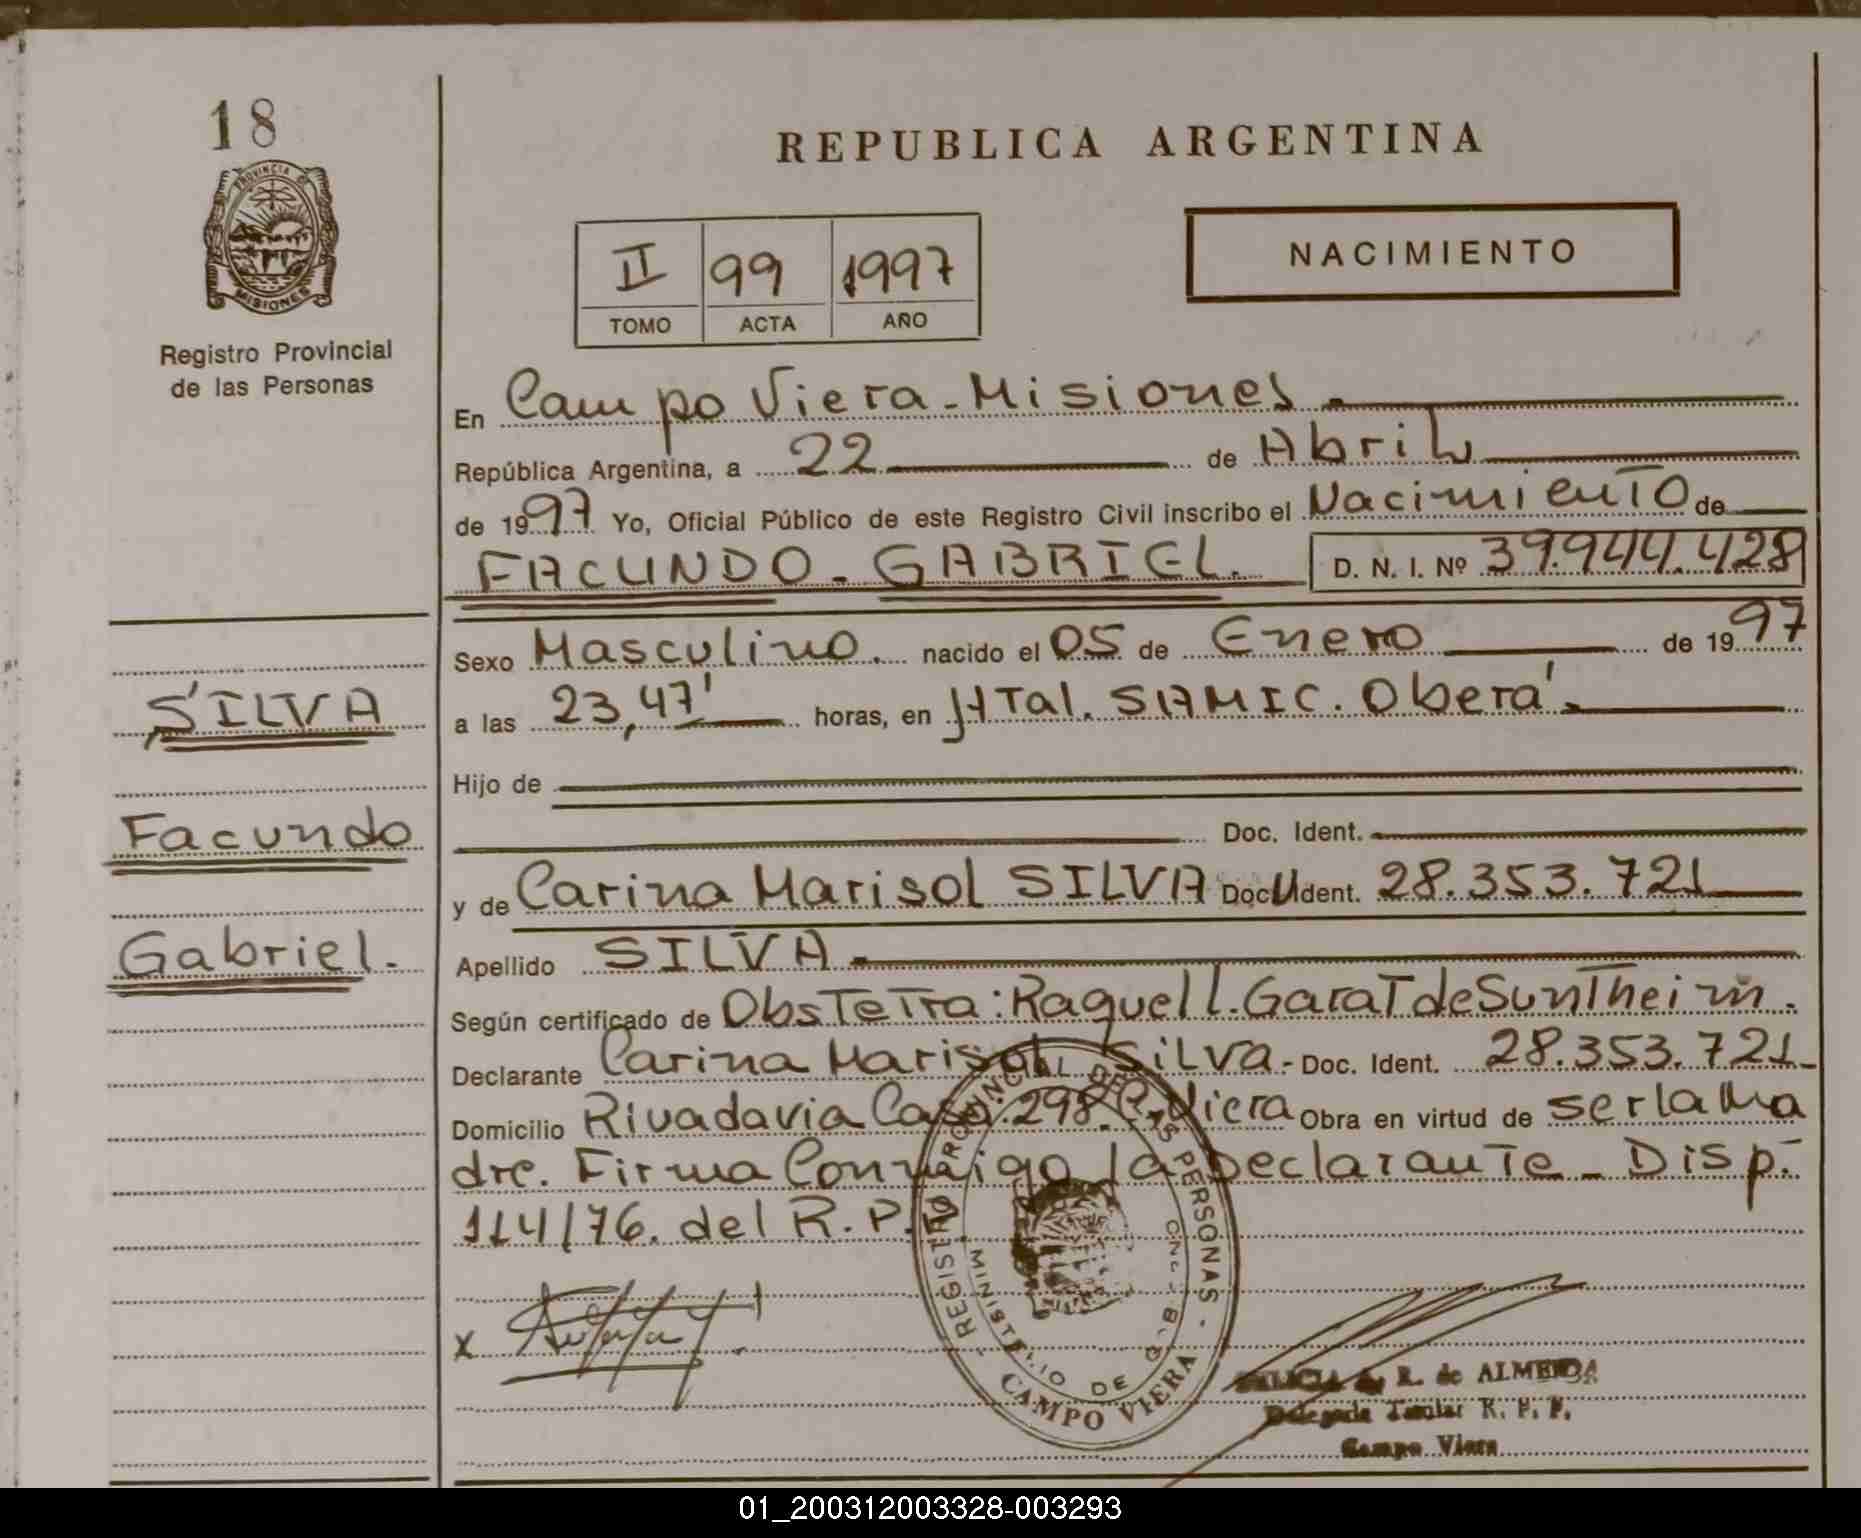 18
PROVINCIA DE
MISIONES
Registro Provincial
de las Personas
REPUBLICA ARGENTINA
II 99 1997
TOMO ACTA AÑO
NACIMIENTO
En Campo Viera-Misiones.
República Argentina, a 22 de Abril
de 1997 Yo, Oficial Público de este Registro Civil inscribo el Nacimiento de
FACUNDO-GABRIEL. D. N. I. Nº 39.944.428
Sexo Masculino. nacido el 05 de Enero de 1997
SILVA
a las 23,47' horas, en HTal. SAMIC. Oberá.
Hijo de
Facundo
Doc. Ident.
y de Carina Marisol SILVA Doc. Ident. 28.353.721
Gabriel.
Apellido SILVA
Según certificado de ObsTeTra: Raquel l. GaraT de SunTheim.
Declarante Carina Marisol Silva- Doc. Ident. 28.353.721
Domicilio Rivadavia Casa.298. C. Viera Obra en virtud de ser la Ma
dre. Firma Conmigo la Declarante_Disp.
114/76. del R.P.P.
REGISTRO PROVINCIAL DE LAS PERSONAS
MINISTERIO DE GOB.
CAMPO VIERA
x
R. de ALMEIDA
Delegada Titular R. P. P.
Campo Viera
01_200312003328-003293